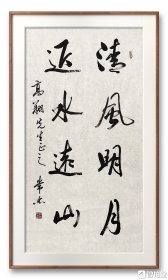 清風明月
近水遠山
高翔先生正之